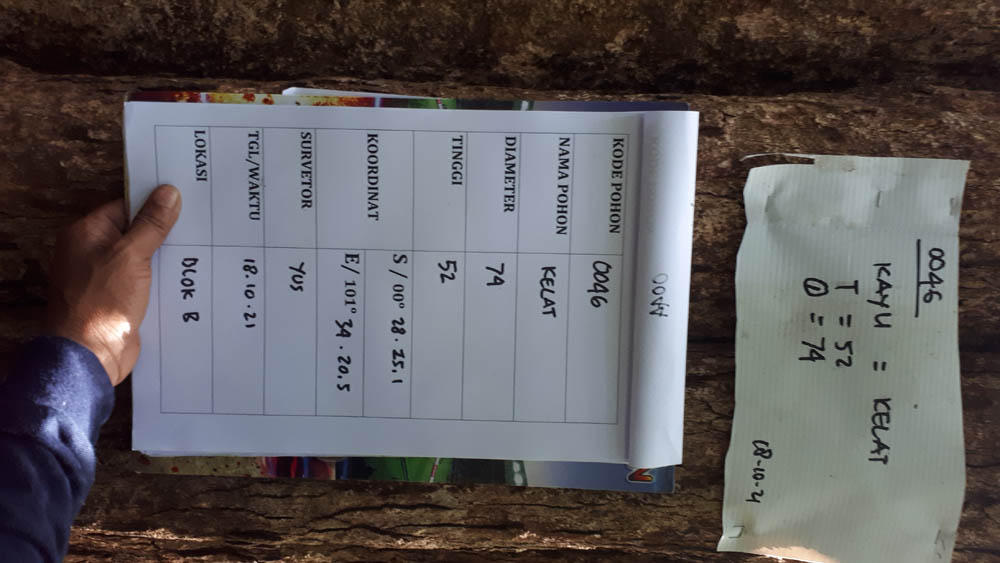 0046
KAYU = KELAT
T = 52
Ⓘ = 74
18-10-21
KODE POHON 0046
NAMA POHON KELAT
DIAMETER 74
TINGGI 52
KOORDINAT
S / 00° 28. 25.1
E/ 101° 34. 20.5
SURVETOR YUS
TGL/WAKTU 18.10.21
LOKASI BLOK B